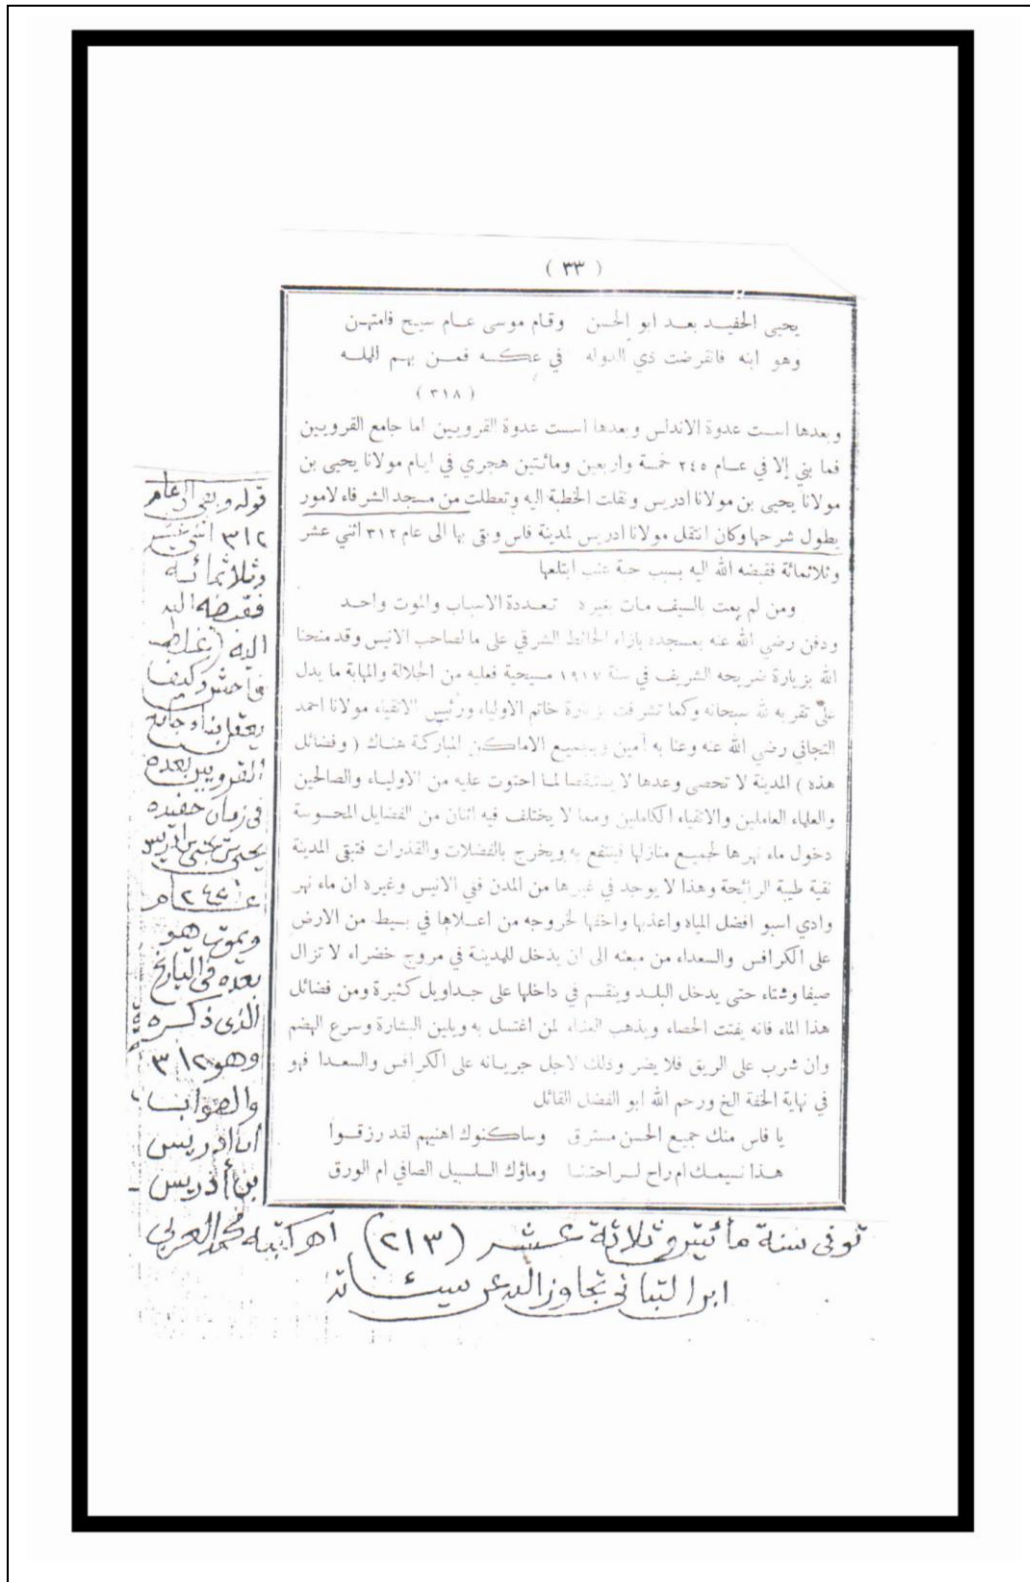 ( ٣٣ )
يحيى الحفيد بعد ابو الحسن وقام موسى عام سيح فامتهن
وهو ابنه فانقرضت ذي الدوله في عكسه فمن بهم المله
( ٣١٨ )
وبعدها اسست عدوة الاندلس وبعدها اسست عدوة القرويين اما جامع القرويين
فما بني إلا في عام ٢٤٥ خمسة واربعين ومائتين هجري في ايام مولانا يحيى بن
مولانا يحيى بن مولانا ادريس ونقلت الخطبة اليه وتعطلت من مسجد الشرفاء لامور
يطول شرحها وكان انتقل مولانا ادريس لمدينة فاس وبقى بها الى عام ٣١٢ اثني عشر
وثلاثمائة فقبضه الله اليه بسبب حبة عنب ابتلعها
ومن لم يمت بالسيف مات بغيره تعددة الاسباب والموت واحد
ودفن رضي الله عنه بمسجده بازاء الحائط الشرقي على ما لصاحب الانيس وقد منحنا
الله بزيارة ضريحه الشريف في سنة ١٩١٧ مسيحية فعليه من الجلالة والمهابة ما يدل
على تقربه لله سبحانه وكما تشرفت بزيارة خاتم الاولياء ورئيس الاتقياء مولانا احمد
التجاني رضي الله عنه وعنا به آمين وبجميع الاماكن المباركة هناك ( وفضائل
هذه ) المدينة لا تحصى وعدها لا يستقصا لما احتوت عليه من الاولياء والصالحين
والعلماء العاملين والاتقياء الكاملين ومما لا يختلف فيه اثنان من الفضايل المحسوسة
دخول ماء نهرها لجميع منازلها فينتفع به ويخرج بالفضلات والقذرات فتبقى المدينة
نقية طيبة الرائحة وهذا لا يوجد في غيرها من المدن ففي الانيس وغيره ان ماء نهر
وادي اسبو افضل المياه واعذبها واخفها لخروجه من اعلاها في بسيط من الارض
على الكرافس والسعداء من منبعه الى ان يدخل للمدينة في مروج خضراء لا تزال
صيفا وشتاء حتى يدخل البلد وينقسم في داخلها على جداويل كثيرة ومن فضائل
هذا الماء فانه يفتت الحصاء ويذهب لمن اغتسل به ويلين البشارة وسرع الهضم
وان شرب على الريق فلا يضر وذلك لاجل جريانه على الكرافس والسعدا فهو
في نهاية الخفة الخ ورحم الله ابو الفضل القائل
يا فاس منك جميع الحسن مسترق وساكنوك اهنيهم لقد رزقوا
هذا نسيمك ام راح لراحتنا وماؤك السلسبيل الصافي ام الورق
قوله وبقي الى عام
٣١٢ اثني عشر
وثلاثمائة
فقبضه الله
اليه غلط
فاحش وكيف
يعقل بناء جامع
القرويين بعده
في زمان حفيده
يحيى بن يحيى بن ادريس
عام ٢٤٥
ويموت هو
بعده في التاريخ
الذي ذكره
وهو ٣١٢
والصواب
أن ادريس
بن أدريس
توفي سنة مائتين وثلاثة عشر (٢١٣) اهـ كتبه محمد العربي
ابن التباني تجاوز الله عن سيئاته